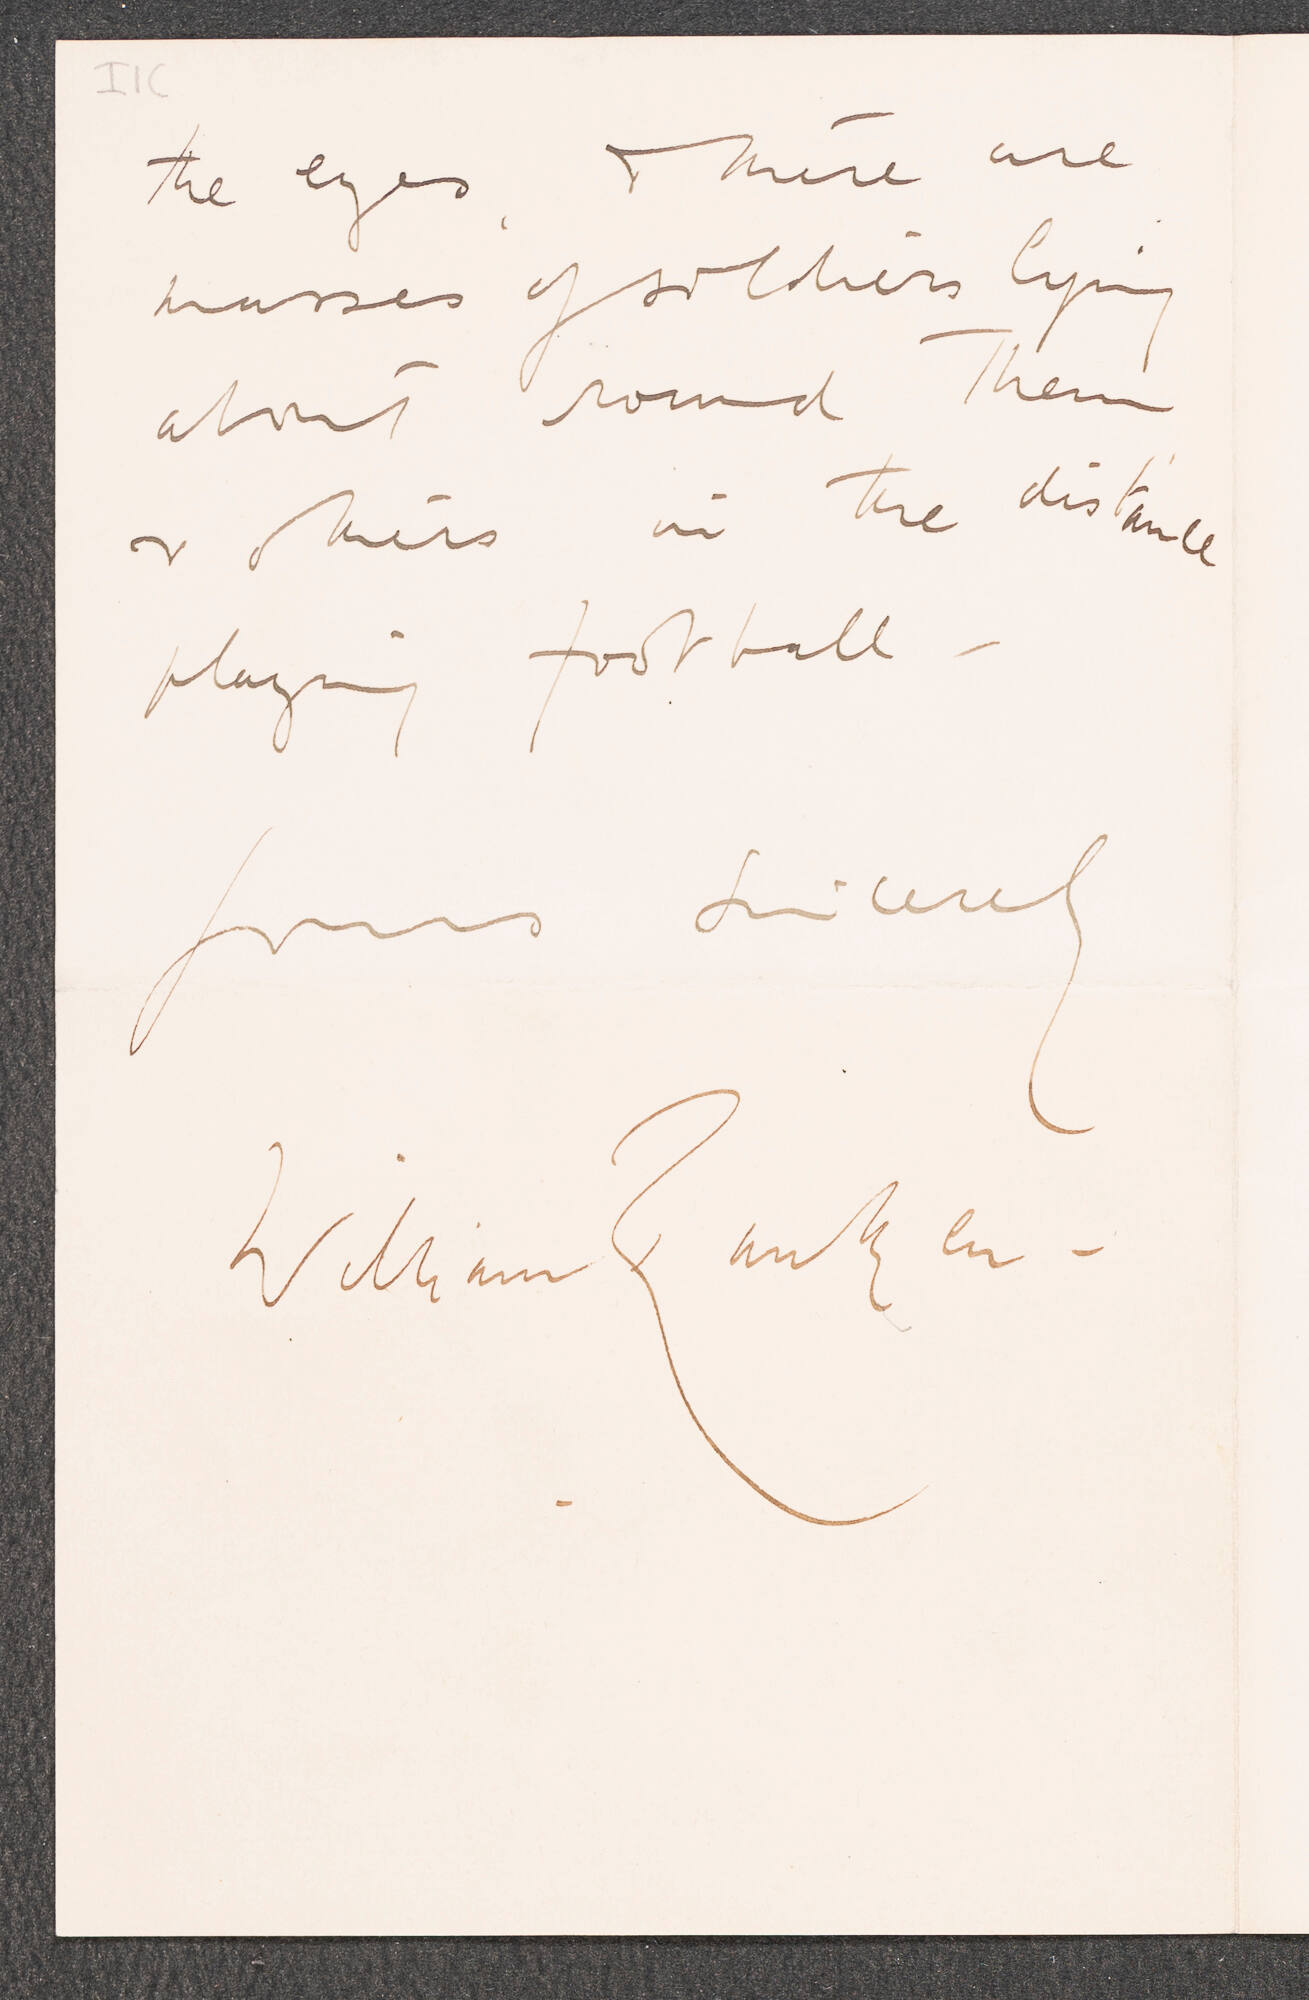 I1C
the eyes, & there are
masses of soldiers lying
about round them
& others in the distance
playing football -
Yours Sincerely
William Rankin -